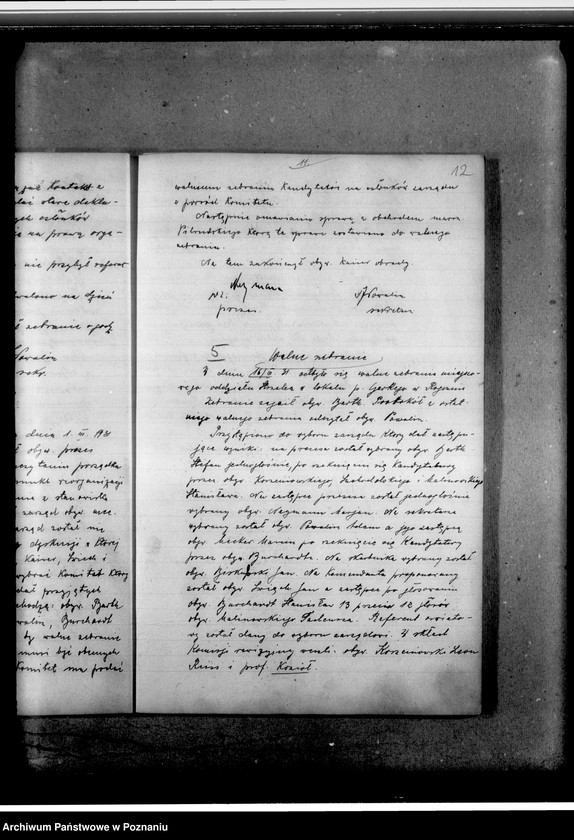 już kontakt z
dać stare dekla-
ych członków
ię na prawą orga-
nie przybył referent
walono na dzień
ł zebranie o godz
Powalin
sekr.
dnia 1. III. 1931
ł obyw. prezes
czytaniem porządku
runki reorganizacji
nie z stanowiska
zarząd obyw.
arząd został
dyskusji z której
Kaiser, Świech i
wybrać Komitet który
dać przyjętych
chodzą: obyw. Barth
walin, Burchardt
by walne zebranie
musi być obecnych
Komitet ma podać
11
12
walnemu zebraniu Kandydatów na członków zarządu
z pośród Komitetu.
Następnie omawiano sprawę z obchodem marsz.
Piłsudskiego którą tę sprawę zostawiono do walnego
zebrania.
Na tem zakończył obyw. Kaiser obrady.
Neymann
prezes.
A Powalin
sekretarz
5 Walne zebranie
W dniu 16/III 31 odbyło się walne zebranie miejsco-
wego oddziału Strzelca w lokalu p. Gerkego w Rogoźnie
Zebranie zagaił obyw. Barth. Protokół z ostat-
niego walnego zebrania odczytał obyw. Powalin.
Przystąpiono do wyboru zarządu który dał następu-
jące wyniki: na prezesa został wybrany obyw. Barth
Stefan jednogłośnie, po zrzeknięciu się Kandydatury
przez obyw. Korzeniowskiego, i Malinowskiego
Stanisława. Na zastępcę prezesa został jednogłośnie
wybrany obyw. Neymann Marjan. Na sekretarza
wybrany został obyw. Powalin Adam a jego zastępcą
obyw. Mecker Marian po zrzeknięciu się Kandydatury
przez obyw. Burchardta. Na skarbnika wybrany został
obyw. Jan. Na komendanta proponowany
został obyw. Świąch Jan a zastępcę po głosowaniu
obyw. Burchardt Stanisław 13 przeciw 12 głosów
obyw. Malinowskiego Tadeusza. Referent oświato-
wy został dany do wyboru zarządowi. W skład
Komisji rewizyjnej weszli: obyw. Korzeniowski Leon
Reiss i prof. Kozioł.
Archiwum Państwowe w Poznaniu